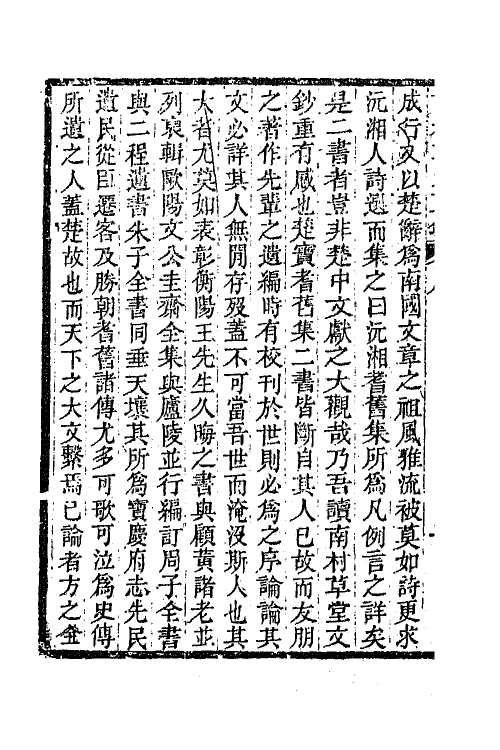 成行又以楚辭爲南國文章之祖風雅流被莫如詩更求
沅湘人詩選而集之曰沅湘耆舊集所爲凡例言之詳矣
是二書者豈非楚中文獻之大觀哉乃吾讀南村草堂文
鈔重有感也楚寶耆舊集二書皆斷自其人已故而友朋
之著作先輩之遺編時有校刊於世則必爲之序論論其
文必詳其人無閒存歿蓋不可當吾世而淹沒斯人也其
大者尤莫如表彰衡陽王先生久晦之書與顧黃諸老並
列裒輯歐陽文公圭齋全集與廬陵並行編訂周子全書
與二程遺書朱子全書同垂天壤其所爲寶慶府志先民
遺民從臣遷客及勝朝耆舊諸傳尤多可歌可泣爲史傳
所遺之人蓋楚故也而天下之大文繫焉已論者方之全